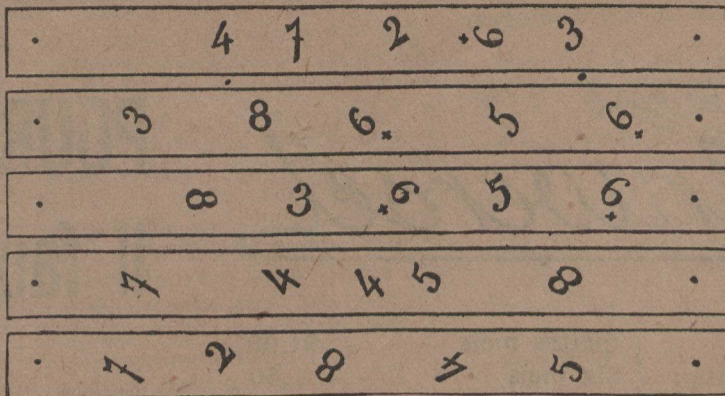 4 7 2 6 3
3 8 6 5 6
8 3 6 5 6
7 4 4 5 8
7 2 8 4 5